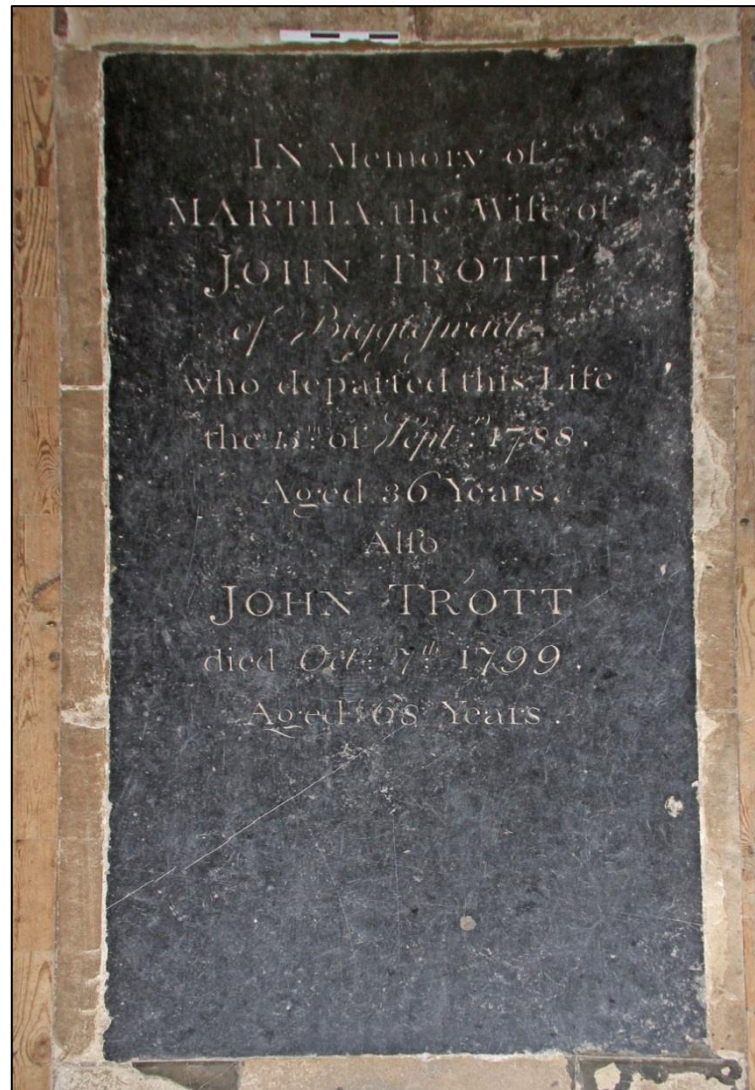 IN Memory of
MARTHA, the Wife of
JOHN TROTT
of Biggleſwade
who departed this Life
the 15th of Septr. 1788.
Aged 36 Years.
Alſo
JOHN TROTT
died Octr. 7th 1799.
Aged 68 Years.